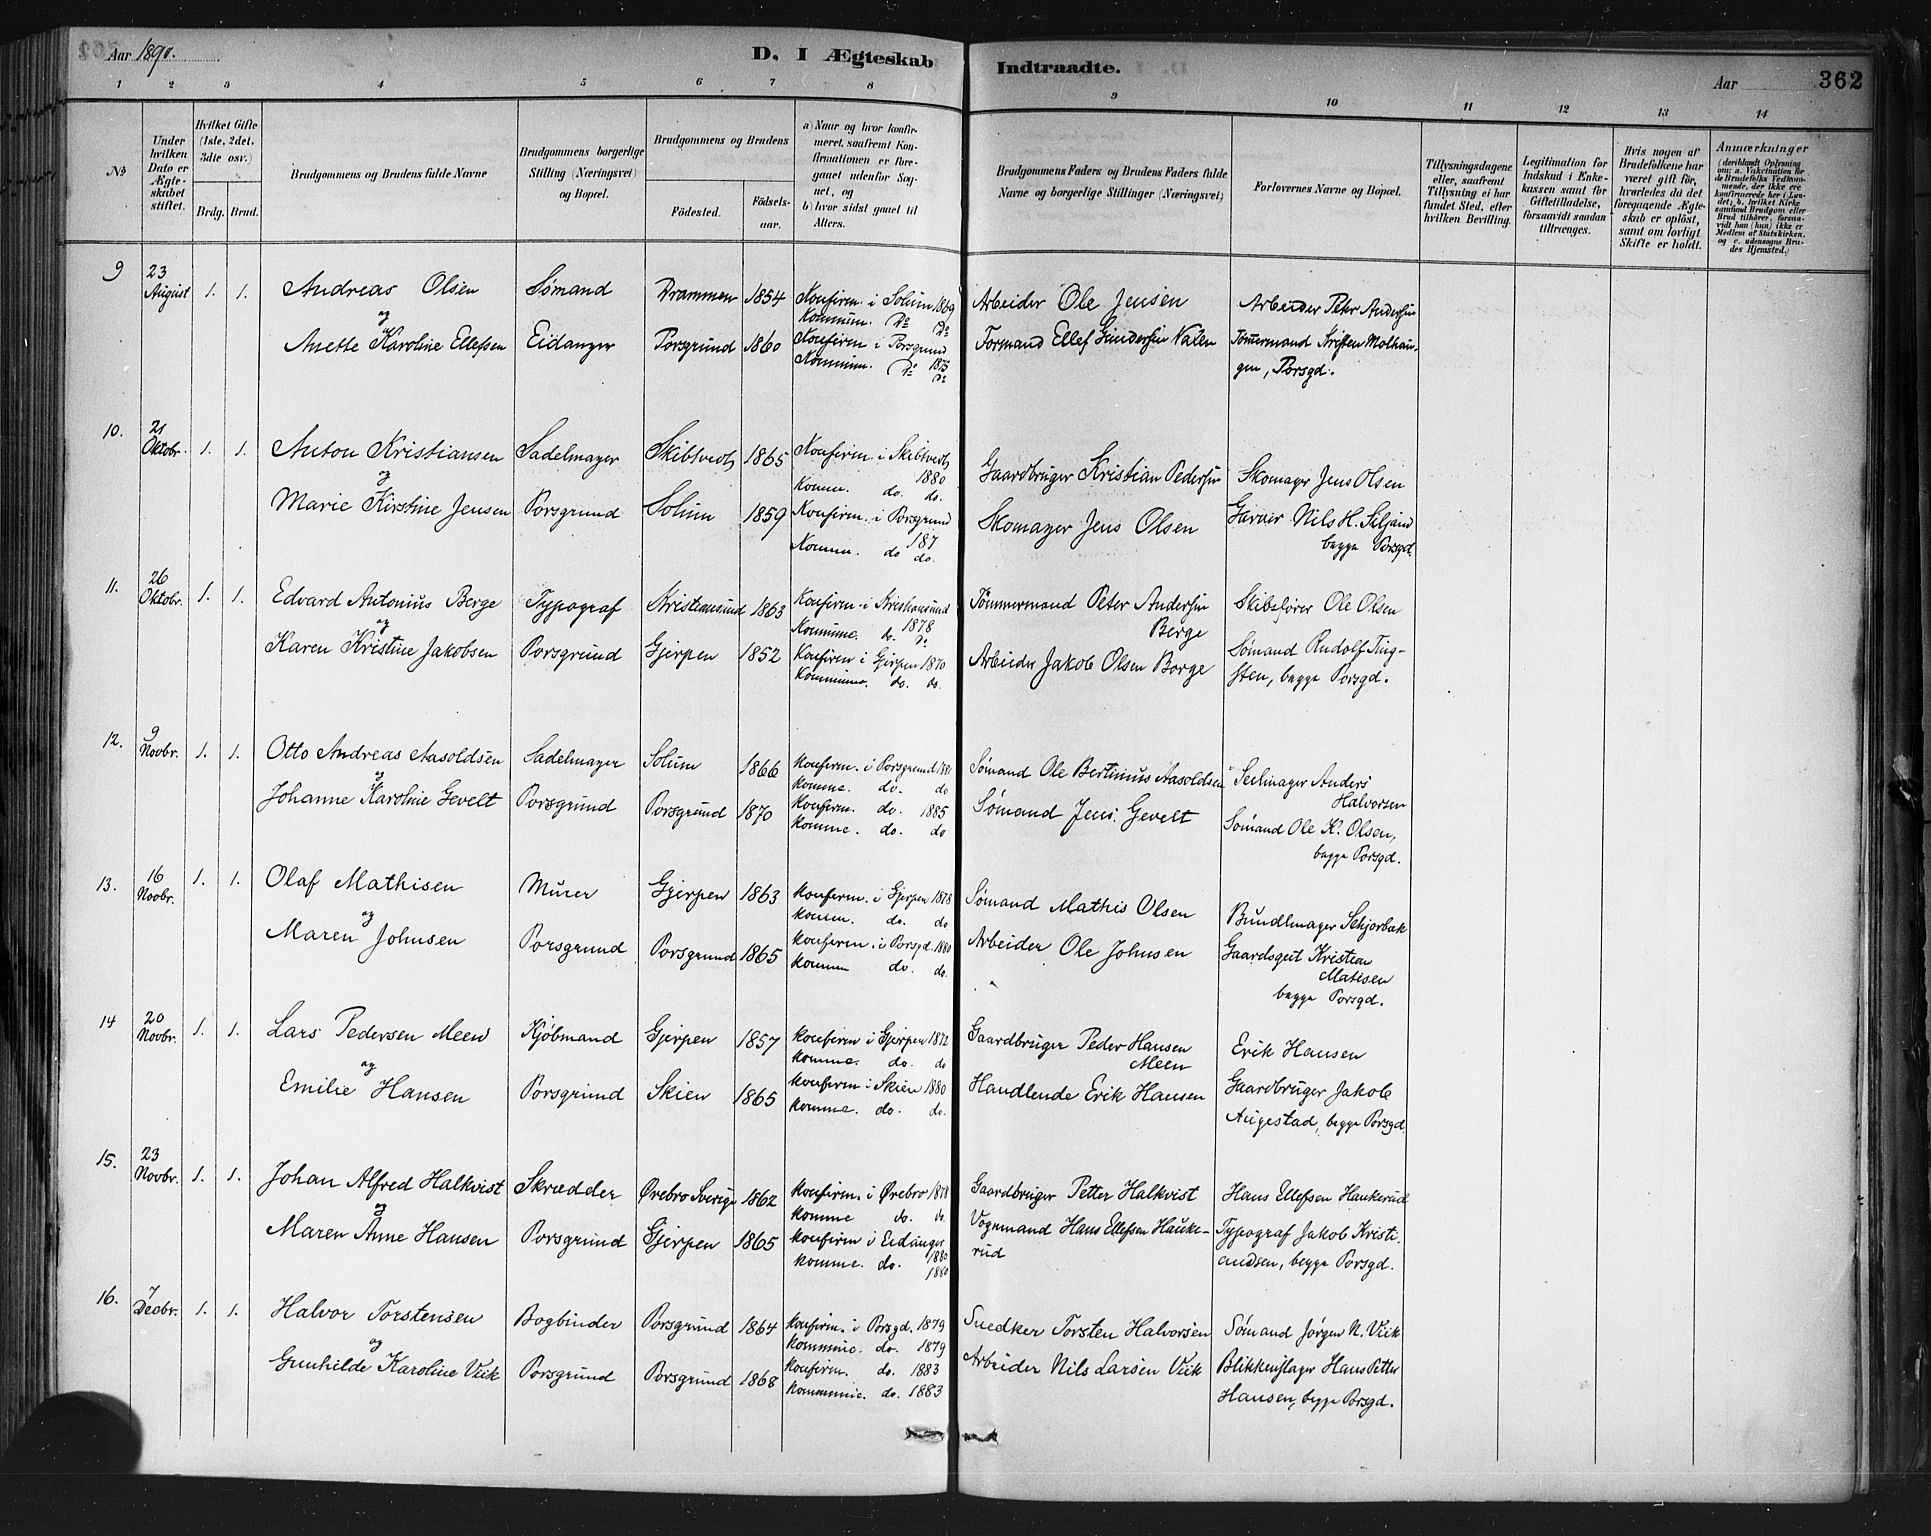 Aar 1890.
D. I Ægteskab Indtraadte.
Aar
362
1 2 3 4 5 6 7 8 9 10 11 12 13 14
No
Under hvilken Dato er Ægteskabet stiftet.
Hvilket Gifte (1ste, 2det, 3die osv.)
Brdg. Brud.
Brudgommens og Brudens fulde Navne
Brudgommens borgerlige Stilling (Næringsvei) og Bopæl.
Brudgommens og Brudens
Födested.
Födselsaar.
a) Naar og hvor konfirmeret, saafremt Konfirmationen er foregaaet udenfor Sognet, og
b) hvor sidst gaaet til Alters.
Brudgommens Faders og Brudens Faders fulde Navne og borgerlige Stillinger (Næringsvei)
Forlovernes Navne og Bopæl.
Tillysningsdagene eller, saafremt Tillysning ei har fundet Sted, efter hvilken Bevilling.
Legitimation for Indskud i Enkekassen samt for Giftetilladelse, forsaavidt saadan tiltrænges.
Hvis nogen af Brudefolkene har været gift før, hvorledes da det foregaaende Ægteskab er opløst, samt om lovligt Skifte er holdt.
Anmærkninger
(deriblandt Oplysning om: a. Vakcination for de Brudefolks Vedkommende, der ikke ere konfirmerede her i Landet; b. hvilket Kirkesamfund Brudgom eller Brud tilhører, forsaavidt han (hun) ikke er Medlem af Statskirken, og c. udensogns Brudes Hjemsted.)
9 23 August 1. 1. Andreas Olsen Sømand Drammen 1854 Konfirm. i Solum 1869 Arbeider Ole Jensen Arbeider Peter Andersen
og Kommun. Do Do
Anette Karoline Ellefsen Eidanger Porsgrund 1860 Konfirm i Porsgrund 1875 Formand Ellef Gundersen Valen Tømmermand Kristen Molhaugen, Porsgd.
Kommun. Do Do
10. 21 Oktobr. 1. 1. Anton Kristiansen Sadelmager Skibtvedt 1865 Konfirm. i Skibtvedt 1880 Gaardbruger Kristian Pedersen Skomager Jens Olsen
og Komm. do. do.
Marie Kirstine Jensen Porsgrund Solum 1859 Konfirm. i Porsgrund 187 Skomager Jens Olsen Garver Nils H. Siljand begge Porsgd.
Komm. do do.
11. 26 Oktobr. 1. 1. Edvard Antonius Berge Typograf Kristiansund 1863 Konfirm. i Kristiansund 1878 Tømmermand Peter Andersen Berge Skibsfører Ole Olsen
og Kommune. do. Do
Karen Kristine Jakobsen Porsgrund Gjerpen 1852 Konfirm i Gjerpen 1870 Arbeider Jakob Olsen Borge Sømand Rudolf Tingsten, begge Porsgd.
Kommune. do. do.
12. 9 Novbr. 1. 1. Otto Andreas Aasoldsen Sadelmager Solum 1866 konfirm. i Porsgrund 1881 Sømand Ole Bertinius Aasoldsen Seilmager Anders Halvorsen
og komme. do. do
Johanne Karoline Gevelt Porsgrund Porsgrund 1870 konfirm. do. 1885 Sømand Jens Gevelt Sømand Ole K. Olsen, begge Porsgd.
komme. do. do
13. 16 Novbr. 1. 1. Olaf Mathisen Murer Gjerpen 1863 konfirm. i Gjerpen 1878 Sømand Mathis Olsen Bundtmager Schjorbak
og komm. do. do
Maren Johnsen Porsgrund Porsgrund 1865 konfirm. i Porsgd. 1880 Arbeider Ole Johnsen Gaardsgut Kristian Matisen begge Porsgd.
komm do. do.
14 20 Novbr. 1. 1. Lars Pedersen Meen Kjøbmand Gjerpen 1857 konfirm i Gjerpen 1872 Gaardbruger Peder Hansen Meen Erik Hansen
og komme. do. do
Emilie Hansen Porsgrund Skien 1865 konfirm i Skien 1880 Handlende Erik Hansen Gaardbruger Jakob Augestad, begge Porsgd.
komme. do. do.
15. 23 Novbr. 1. 1. Johan Alfred Halkvist Skrædder Ørebro Sverige 1862 konfirm. i Ørebro 1878 Gaardbruger Petter Halkvist Hans Ellefsen Haukerud
og komme do. do.
Maren Anne Hansen Porsgrund Gjerpen 1865 konfirm i Eidanger 1880 Vognmand Hans Ellefsen Haukerud Typograf Jakob Kristiandsen, begge Porsgd.
komme. do. 1880
16. 7 Decbr. 1. 1. Halvor Torstensen Bogbinder Porsgrund 1864 konfirm. i Porsgd. 1879 Snedker Torsten Halvorsen Sømand Jørgen N. Viik
og kommune. do. 1879
Gunhilde Karoline Viik Porsgrund Porsgrund 1868 konfirm. do. 1883 Arbeider Nils Larsen Viik Blikkenslager Hans Petter Hansen, begge Porsgd.
kommune. do. 1883